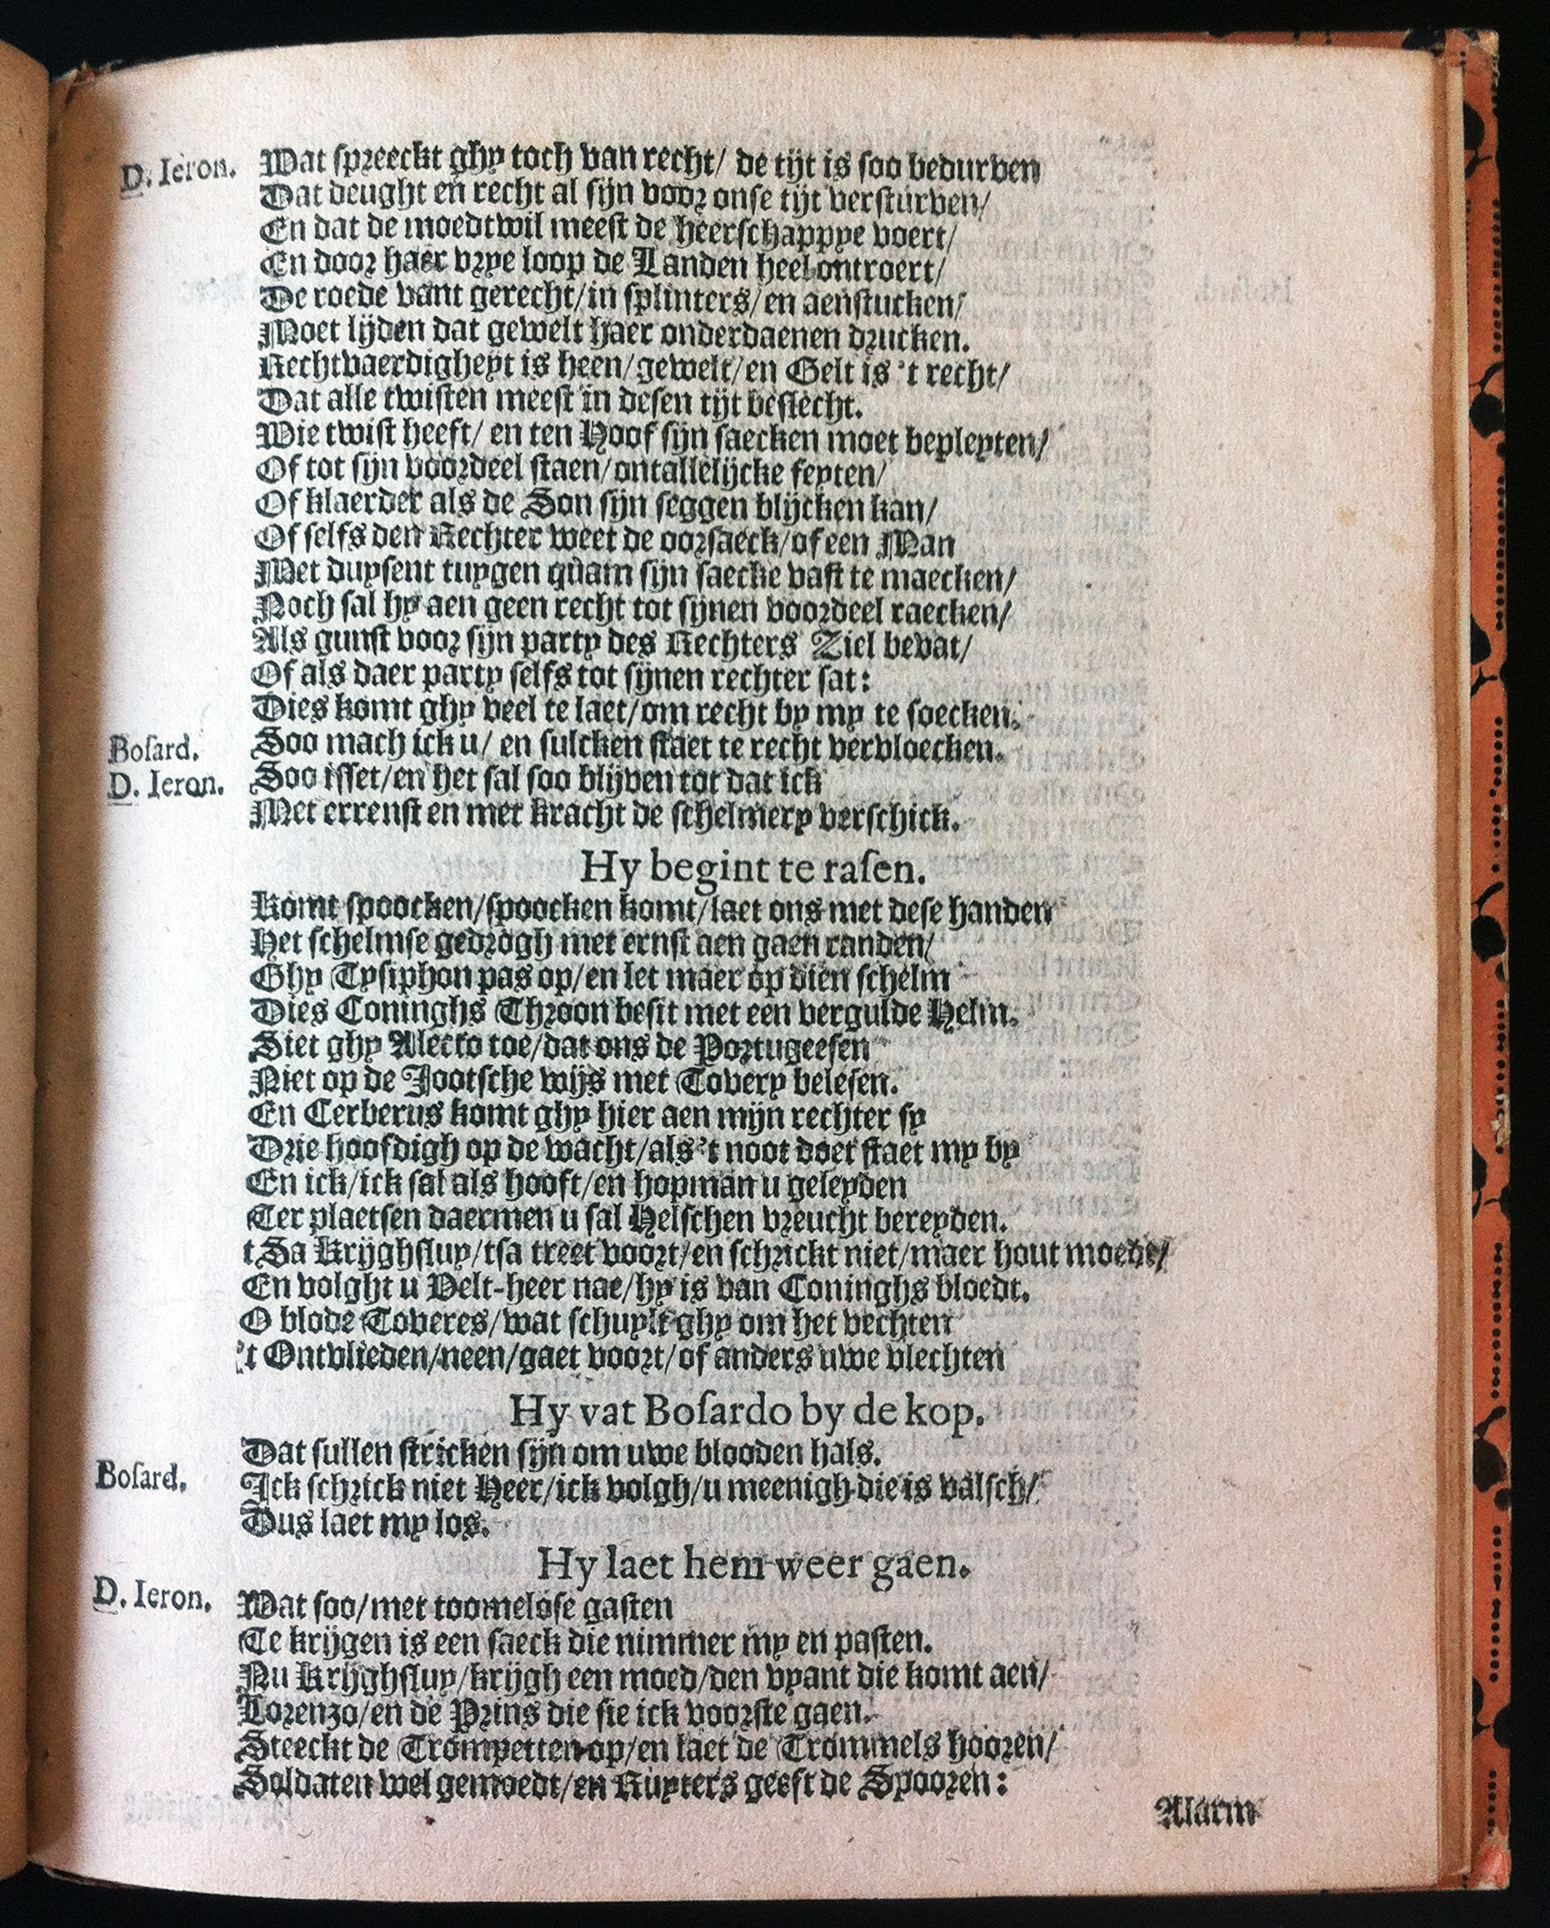 D. Ieron. Wat spreeckt ghy toch van recht/ de tijt is soo bedurven
Dat deught en recht al sijn voor onse tijt versturven/
En dat de moedtwil meest de heerschappye voert/
En door haer vrye loop de Landen heel ontroert/
De roede vant gerecht/in splinters/en aenstucken/
Moet lijden dat gewelt haer onderdaenen drucken.
Rechtvaerdigheyt is heen/gewelt/en Gelt is 't recht/
Dat alle twisten meest in desen tijt beslecht.
Wie twist heeft/ en ten Hoof sijn saecken moet bepleyten/
Of tot sijn voordeel staen/ontallelijcke feyten/
Of klaerder als de Son sijn seggen blijcken kan/
Of selfs den Rechter weet de oorsaeck/of een Man
Met duysent tuygen quam sijn saecke vast te maecken/
Noch sal hy aen geen recht tot sijnen voordeel raecken/
Als gunst voor sijn party des Rechters Ziel bevat/
Of als daer party selfs tot sijnen rechter sat:
Dies komt ghy veel te laet/om recht by my te soecken.
Bosard. Soo mach ick u/ en sulcken staet te recht vervloecken.
D. Ieron. Soo isset/en het sal soo blijven tot dat ick
Met errenst en met kracht de schelmery verschick.
Hy begint te rasen.
Komt spoocken/spoocken komt/laet ons met dese handen
Het schelmse gedrogh met ernst aen gaen randen/
Ghy Tysiphon pas op/en let maer op dien schelm
Dies Coninghs Throon besit met een vergulde Helm.
Siet ghy Alecto toe/dat ons de Portugeesen
Niet op de Jootsche wijs met Tovery belesen.
En Cerberus komt ghy hier aen mijn rechter sy
Drie hoofdigh op de wacht/als 't noot doet staet my by
En ick/ick sal als hooft/en hopman u geleyden
Ter plaetsen daermen u sal Helschen vreucht bereyden.
t Sa Krijghsluy/tsa treet voort/en schrickt niet/maer hout moedt/
En volght u Velt-heer nae/hy is van Coninghs bloedt.
O blode Toveres/wat schuylt ghy om het vechten
't Ontvlieden/neen/gaet voort/of anders uwe vlechten
Hy vat Bosardo by de kop.
Dat sullen stricken sijn om uwe blooden hals.
Bosard. Ick schrick niet Heer/ick volgh/u meenigh die is valsch/
Dus laet my los.
Hy laet hem weer gaen.
D. Ieron. Wat soo/met toomelose gasten
Te krijgen is een saeck die nimmer my en pasten.
Nu Krijghsluy/krijgh een moed/den vyant die komt aen/
Lorenzo/en de Prins die sie ick voorste gaen.
Steeckt de Trompetten op/en laet de Trommels hooren/
Soldaten wel gemoedt/en Ruyters geeft de Spooren:
Alarm